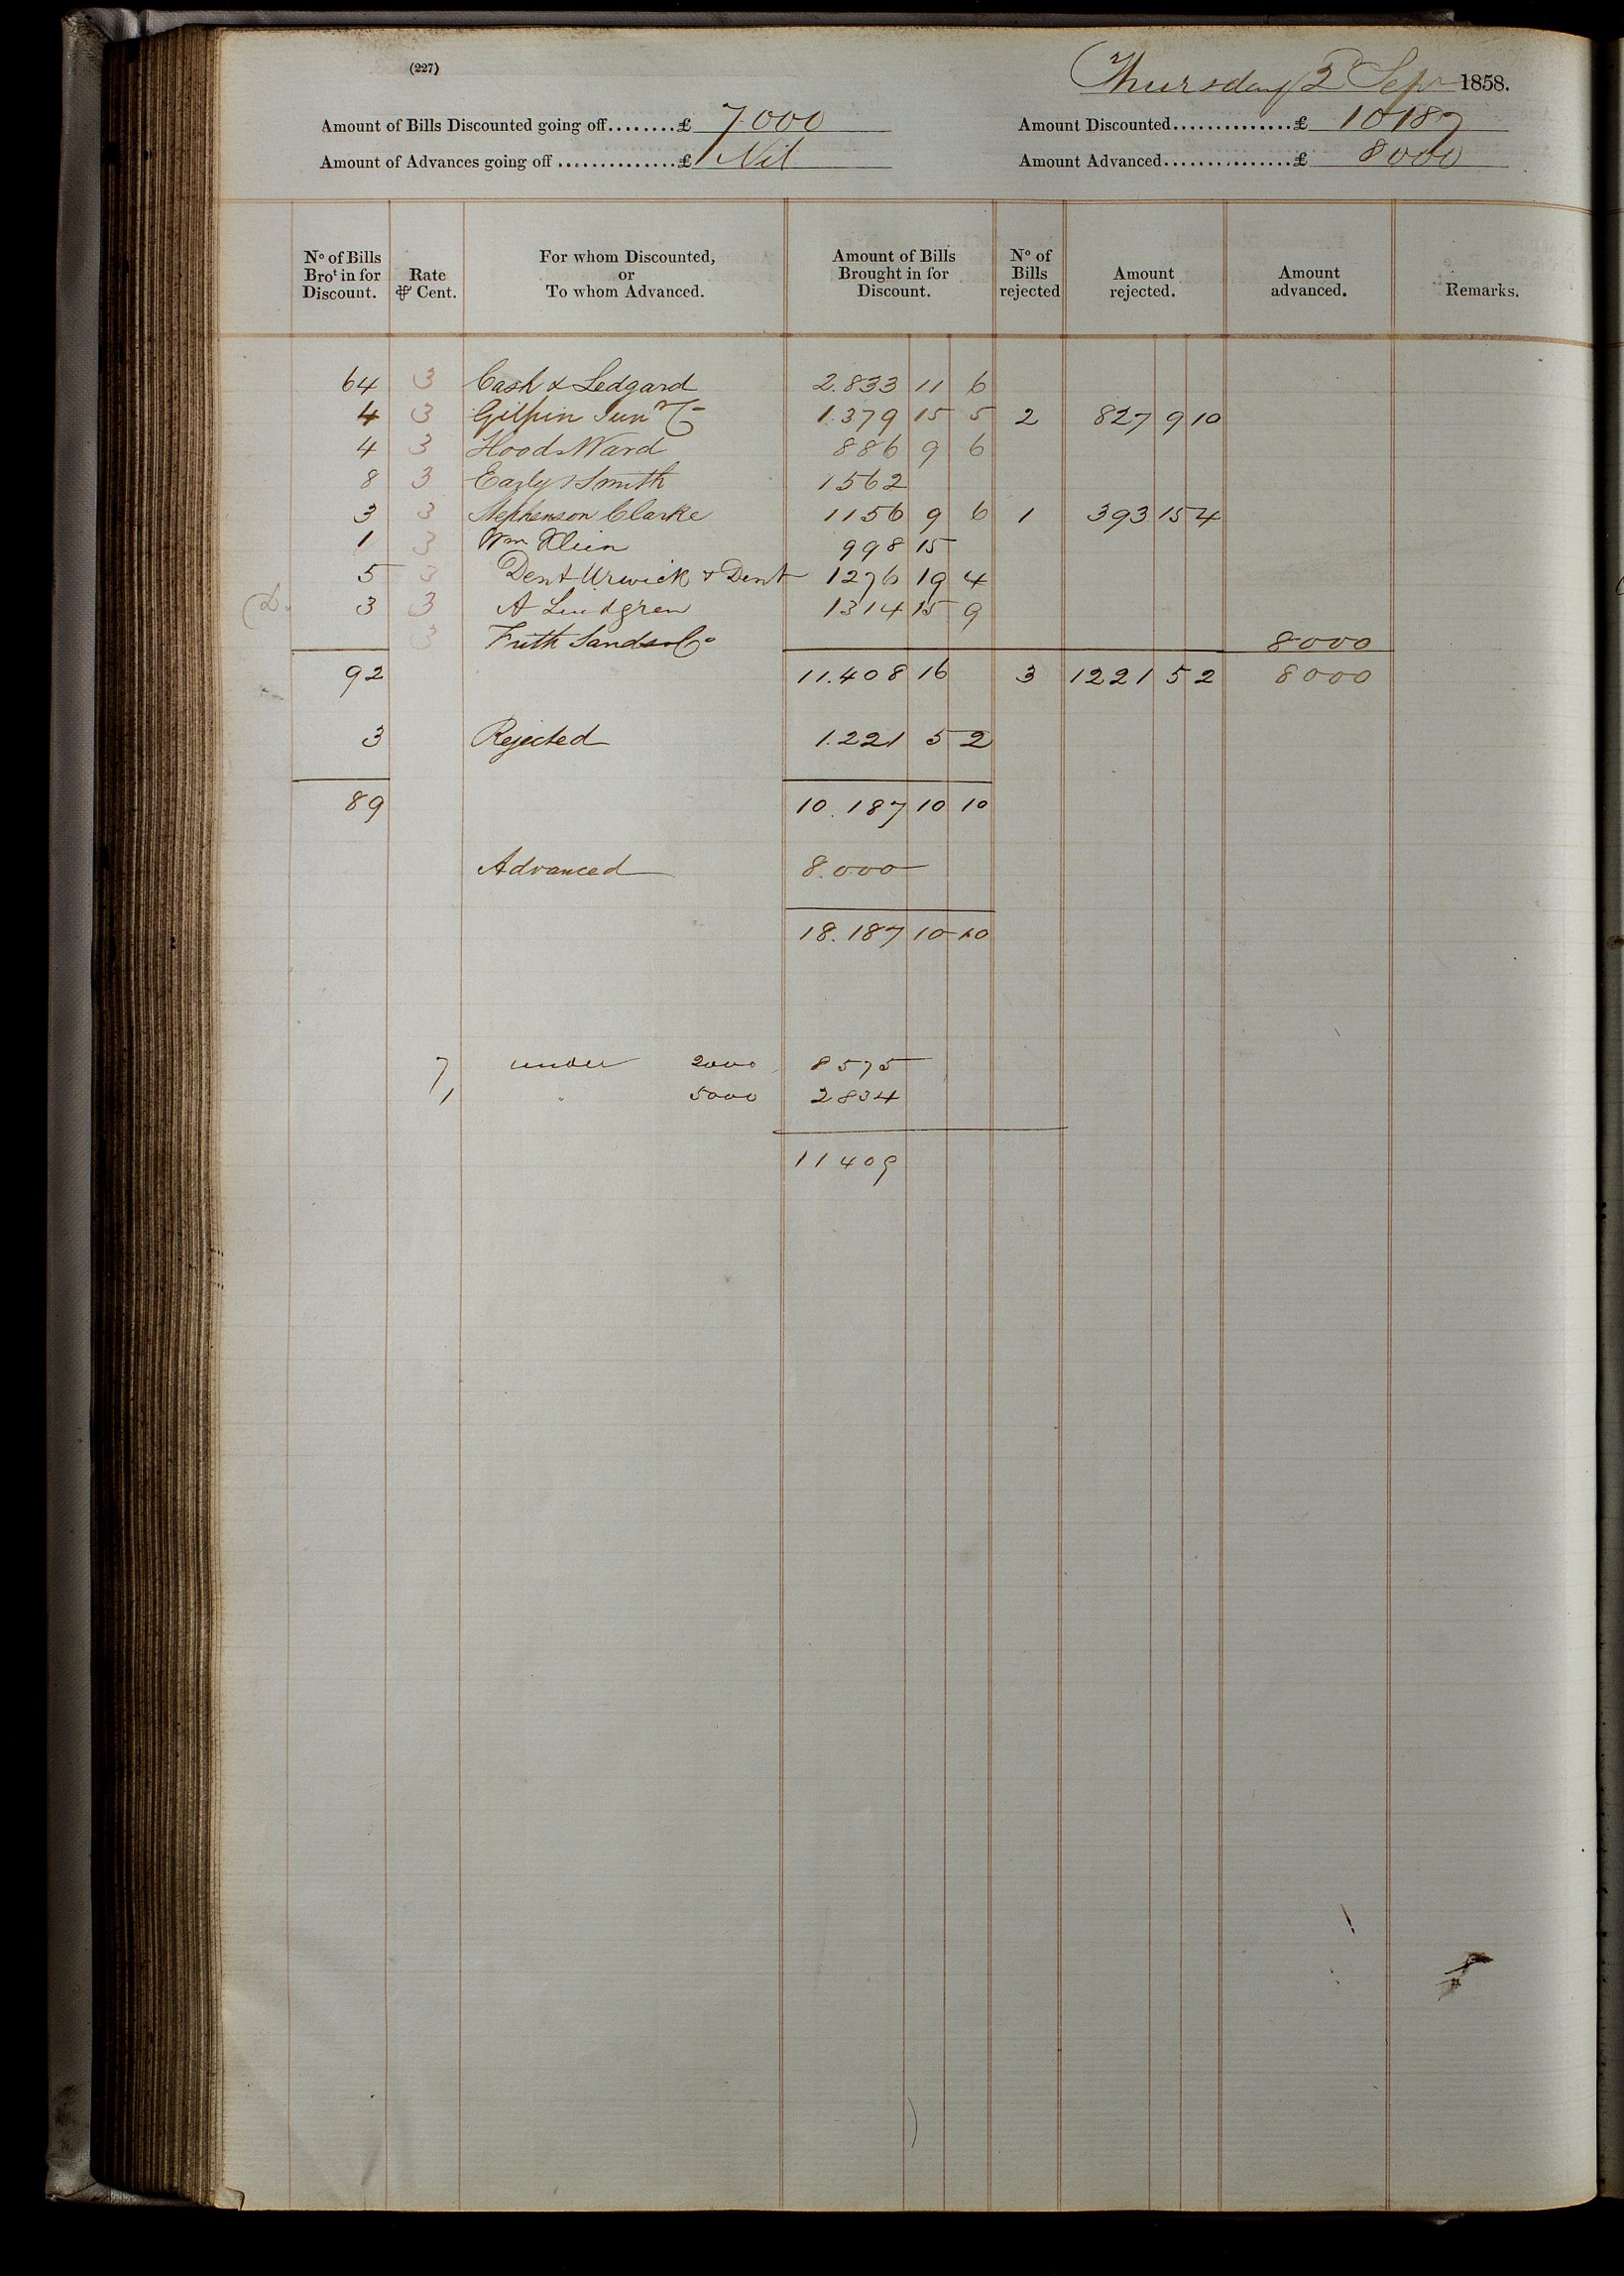 (227)
Thursday 2d Sepr 1858.
Amount of Bills Discounted going off........£ 7000
Amount Discounted..............£ 10187
Amount of Advances going off..............£ Nil
Amount Advanced...............£ 8000
No of Bills Brot in for Discount. Rate ⅌ Cent. For whom Discounted, or To whom Advanced. Amount of Bills Brought in for Discount. No of Bills rejected Amount rejected. Amount advanced. Remarks.
64 3 Cash & Ledgard 2.833 11 6
4 3 Gilpin Junr & Co 1.379 15 5 2 827 9 10
4 3 Hoods Ward 886 9 6
8 3 Early & Smith 1562
3 3 Stephenson Clarke 1156 9 6 1 393 15 4
1 3 Wm Klein 998 15
5 3 Dent Urwick & Dent 1276 19 4
3 3 A Lindgren 1314 15 9
3 Frith Sands & Co 8000
92 11.408 16 3 1221 5 2 8000
3 Rejected 1.221 5 2
89 10.187 10 10
Advanced 8.000
18.187 10 10
7 under 2000 8575
1 " 5000 2834
11409